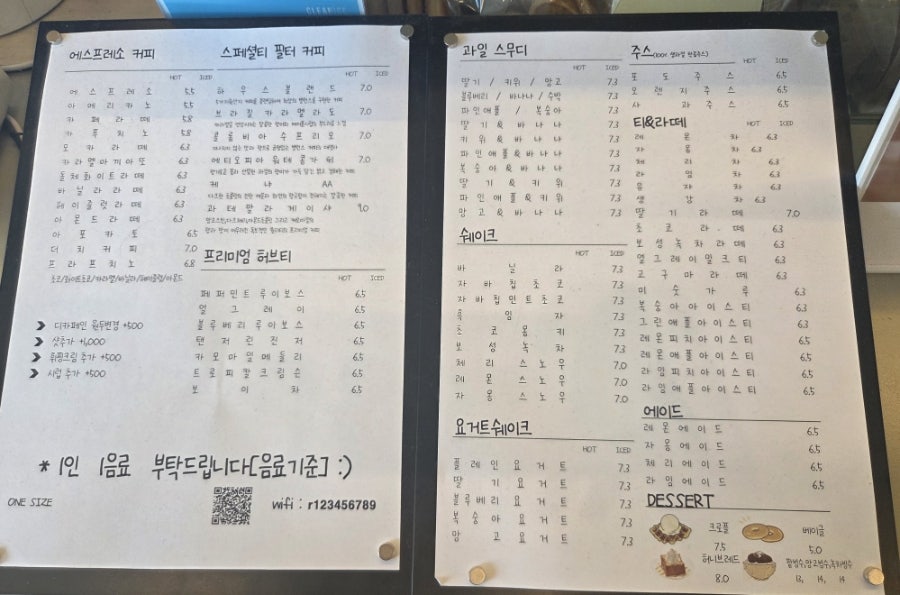 에스프레소 커피
HOT ICED
에스프레소 5.5
아메리카노 5.5
카페라떼 5.8
카푸치노 5.8
모카라떼 6.3
카라멜마끼아또 6.3
돌체화이트라떼 6.3
바닐라라떼 6.3
헤이즐럿라떼 6.3
아몬드라떼 6.3
아포카토 6.5
더치커피 7.0
프라프치노 6.8
초코/화이트초코/카라멜/바닐라/헤이즐럿/아몬드
디카페인 원두변경 +500
샷추가 +1,000
휘핑크림 추가 +500
시럽 추가 +500
스페셜티 필터 커피
HOT ICED
하우스블렌드 7.0
브라질카라멜라도 7.0
콜롬비아수프리모
에티오피아워데콩가 G1 7.0
케냐AA
과테말라게이샤 9.0
프리미엄 허브티
HOT ICED
페퍼민트루이보스 6.5
얼그레이 6.5
블루베리루이보스 6.5
탠저린진저 6.5
카모마일메들리 6.5
트로피칼크림슨 6.5
보이차 6.5
* 1인 1음료 부탁드립니다[음료기준] :)
ONE SIZE
wifi : r123456789
과일 스무디
HOT ICED
딸기 / 키위 / 망고 7.3
블루베리 / 바나나 / 수박 7.3
파인애플 / 복숭아 7.3
딸기&바나나 7.3
키위&바나나 7.3
파인애플&바나나 7.3
복숭아&바나나 7.3
딸기&키위 7.3
파인애플&키위 7.3
망고&바나나 7.3
쉐이크
HOT ICED
바닐라 7.3
자바칩초코 7.3
자바칩민트초코 7.3
흑임자 7.3
초코쿠키 7.3
보성녹차 7.3
체리스노우 7.0
레몬스노우 7.0
자몽스노우 7.0
요거트쉐이크
HOT ICED
플레인요거트 7.3
딸기요거트 7.3
블루베리요거트 7.3
복숭아요거트 7.3
망고요거트 7.3
주스(100% 생과일 판중주스)
HOT ICED
포도주스 6.5
오렌지주스 6.5
사과주스 6.5
티&라떼
HOT ICED
레몬차 6.3
자몽차 6.3
체리차 6.3
라임차 6.3
유자차 6.3
생강차 6.3
딸기라떼 7.0
초코라떼 6.3
보성녹차라떼 6.3
얼그레이밀크티 6.3
고구마라떼 6.3
미숫가루 6.3
복숭아아이스티 6.3
그린애플아이스티 6.3
레몬피치아이스티 6.5
레몬애플아이스티 6.5
라임피치아이스티 6.5
라임애플아이스티 6.5
에이드
레몬에이드 6.5
자몽에이드 6.5
체리에이드 6.5
라임에이드 6.5
DESSERT
크로플 베이글
7.5 5.0
허니브레드 팥빙수,망고빙수,녹차빙수
8.0 13, 14, 14